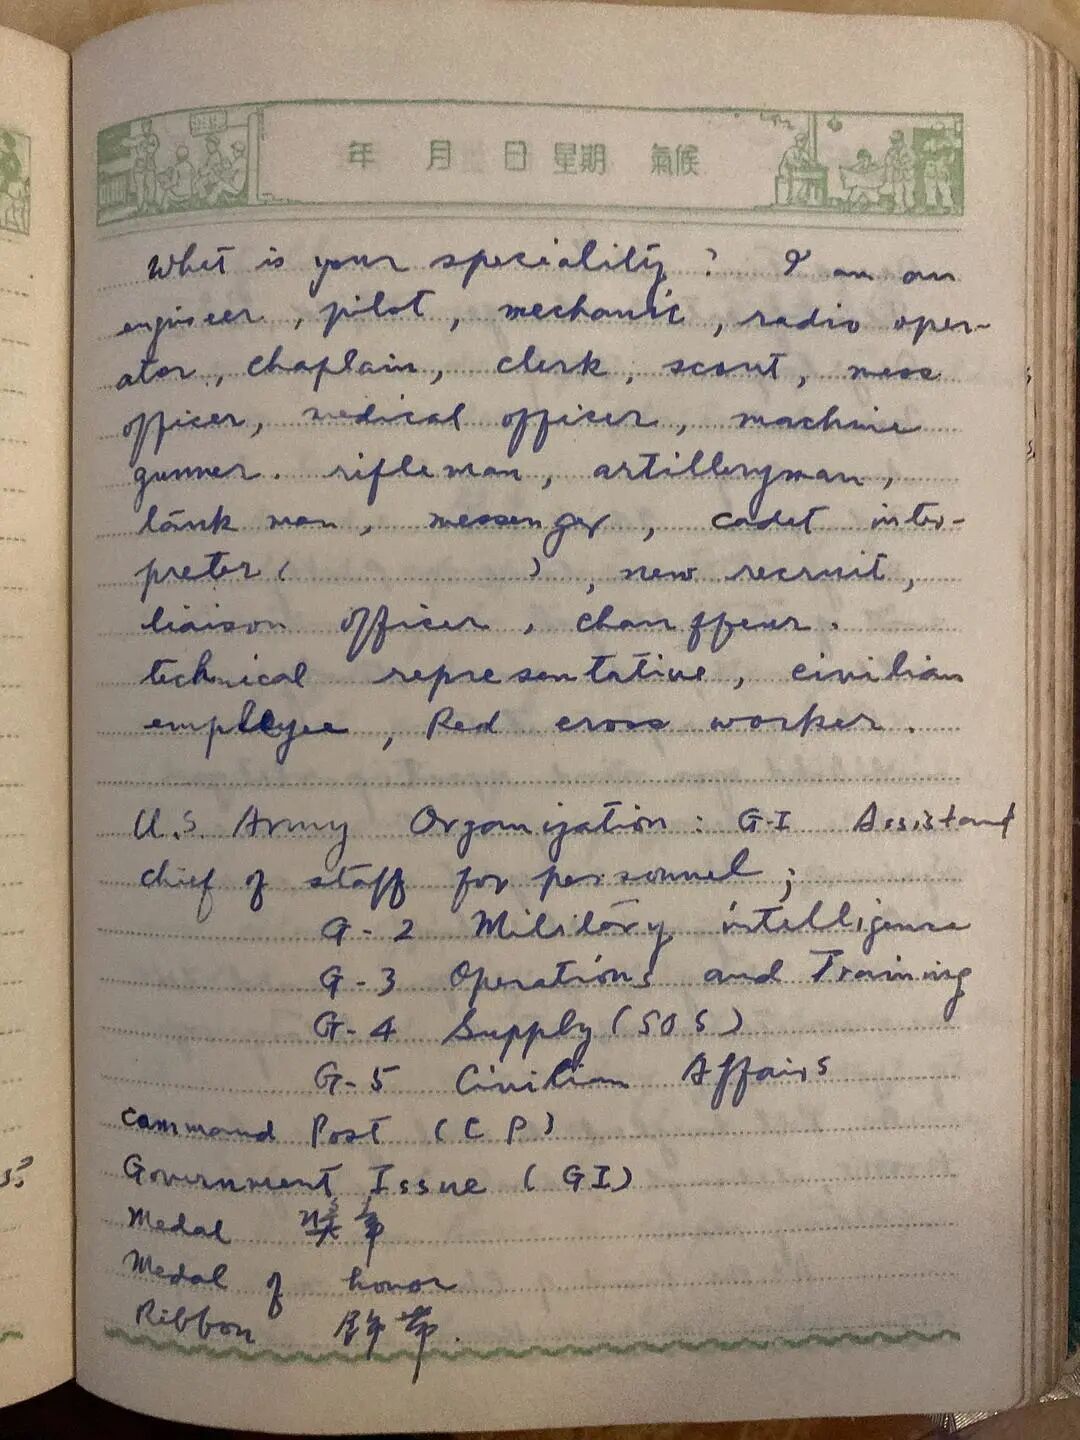 年 月 日 星期 氣候
What is your speciality? I am an
engineer, pilot, mechanic, radio oper-
ator, chaplain, clerk, scout, mess
officer, medical officer, machine
gunner. rifleman, artilleryman,
tank man, messenger, cadet inter-
preter ( ), new recruit,
liaison officer, chauffeur.
technical representative, civilian
employee, Red cross worker.
U.S. Army Organization: G-I Assistant
chief of staff for personnel;
G-2 Military intelligence
G-3 Operations and Training
G-4 Supply (SOS)
G-5 Civilian Affairs
Command Post (CP)
Government Issue (GI)
Medal
Medal of honor
Ribbon 飾帶.
s?